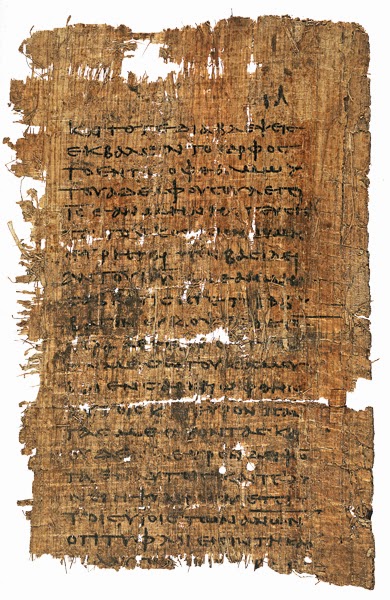 ΙΑ
ΚΑΙ ΤΟΤΕ ΔΙΑΒΛΕΨΕΙϹ
ΕΚΒΑΛΕΙΝ ΤΟ ΚΑΡΦΟϹ
ΤΟ ΕΝ ΤΩ ΟΦΘΑΛΜΩ
ΤΟΥ ΑΔΕΛΦΟΥ ϹΟΥ ΛΕΓΕΙ
ΙϹ ΕΑΝ ΜΗ ΝΗϹΤΕΥϹΗ
ΤΑΙ ΤΟΝ ΚΟϹΜΟΝ ΟΥ ΜΗ
ΕΥΡΗΤΑΙ ΤΗΝ ΒΑϹΙΛΕΙ
ΑΝ ΤΟΥ ΘΥ ΚΑΙ ΕΑΝ ΜΗ
ϹΑΒΒΑΤΙϹΗΤΕ ΤΟ ϹΑΒ
ΒΑΤΟΝ ΟΥΚ ΟΨΕϹΘΕ ΤΟ
ΠΡΑ ΛΕΓΕΙ ΙϹ ΕϹΤΗΝ
ΕΝ ΜΕϹΩ ΤΟΥ ΚΟϹΜΟΥ
ΚΑΙ ΕΝ ϹΑΡΚΙ ΩΦΘΗΝ
ΑΥΤΟΙϹ ΚΑΙ ΕΥΡΟΝ ΠΑΝ
ΤΑϹ ΜΕΘΥΟΝΤΑϹ ΚΑΙ
ΟΥΔΕΝΑ ΕΥΡΟΝ ΔΕΙΨΩ
ΤΑ ΕΝ ΑΥΤΟΙϹ ΚΑΙ ΠΟ
ΝΕΙ Η ΨΥΧΗ ΜΟΥ ΕΠΙ
ΤΟΙϹ ΥΙΟΙϹ ΤΩΝ ΑΝΩΝ
ΟΤΙ ΤΥΦΛΟΙ ΕΙϹΙΝ ΤΗ ΚΑΡ